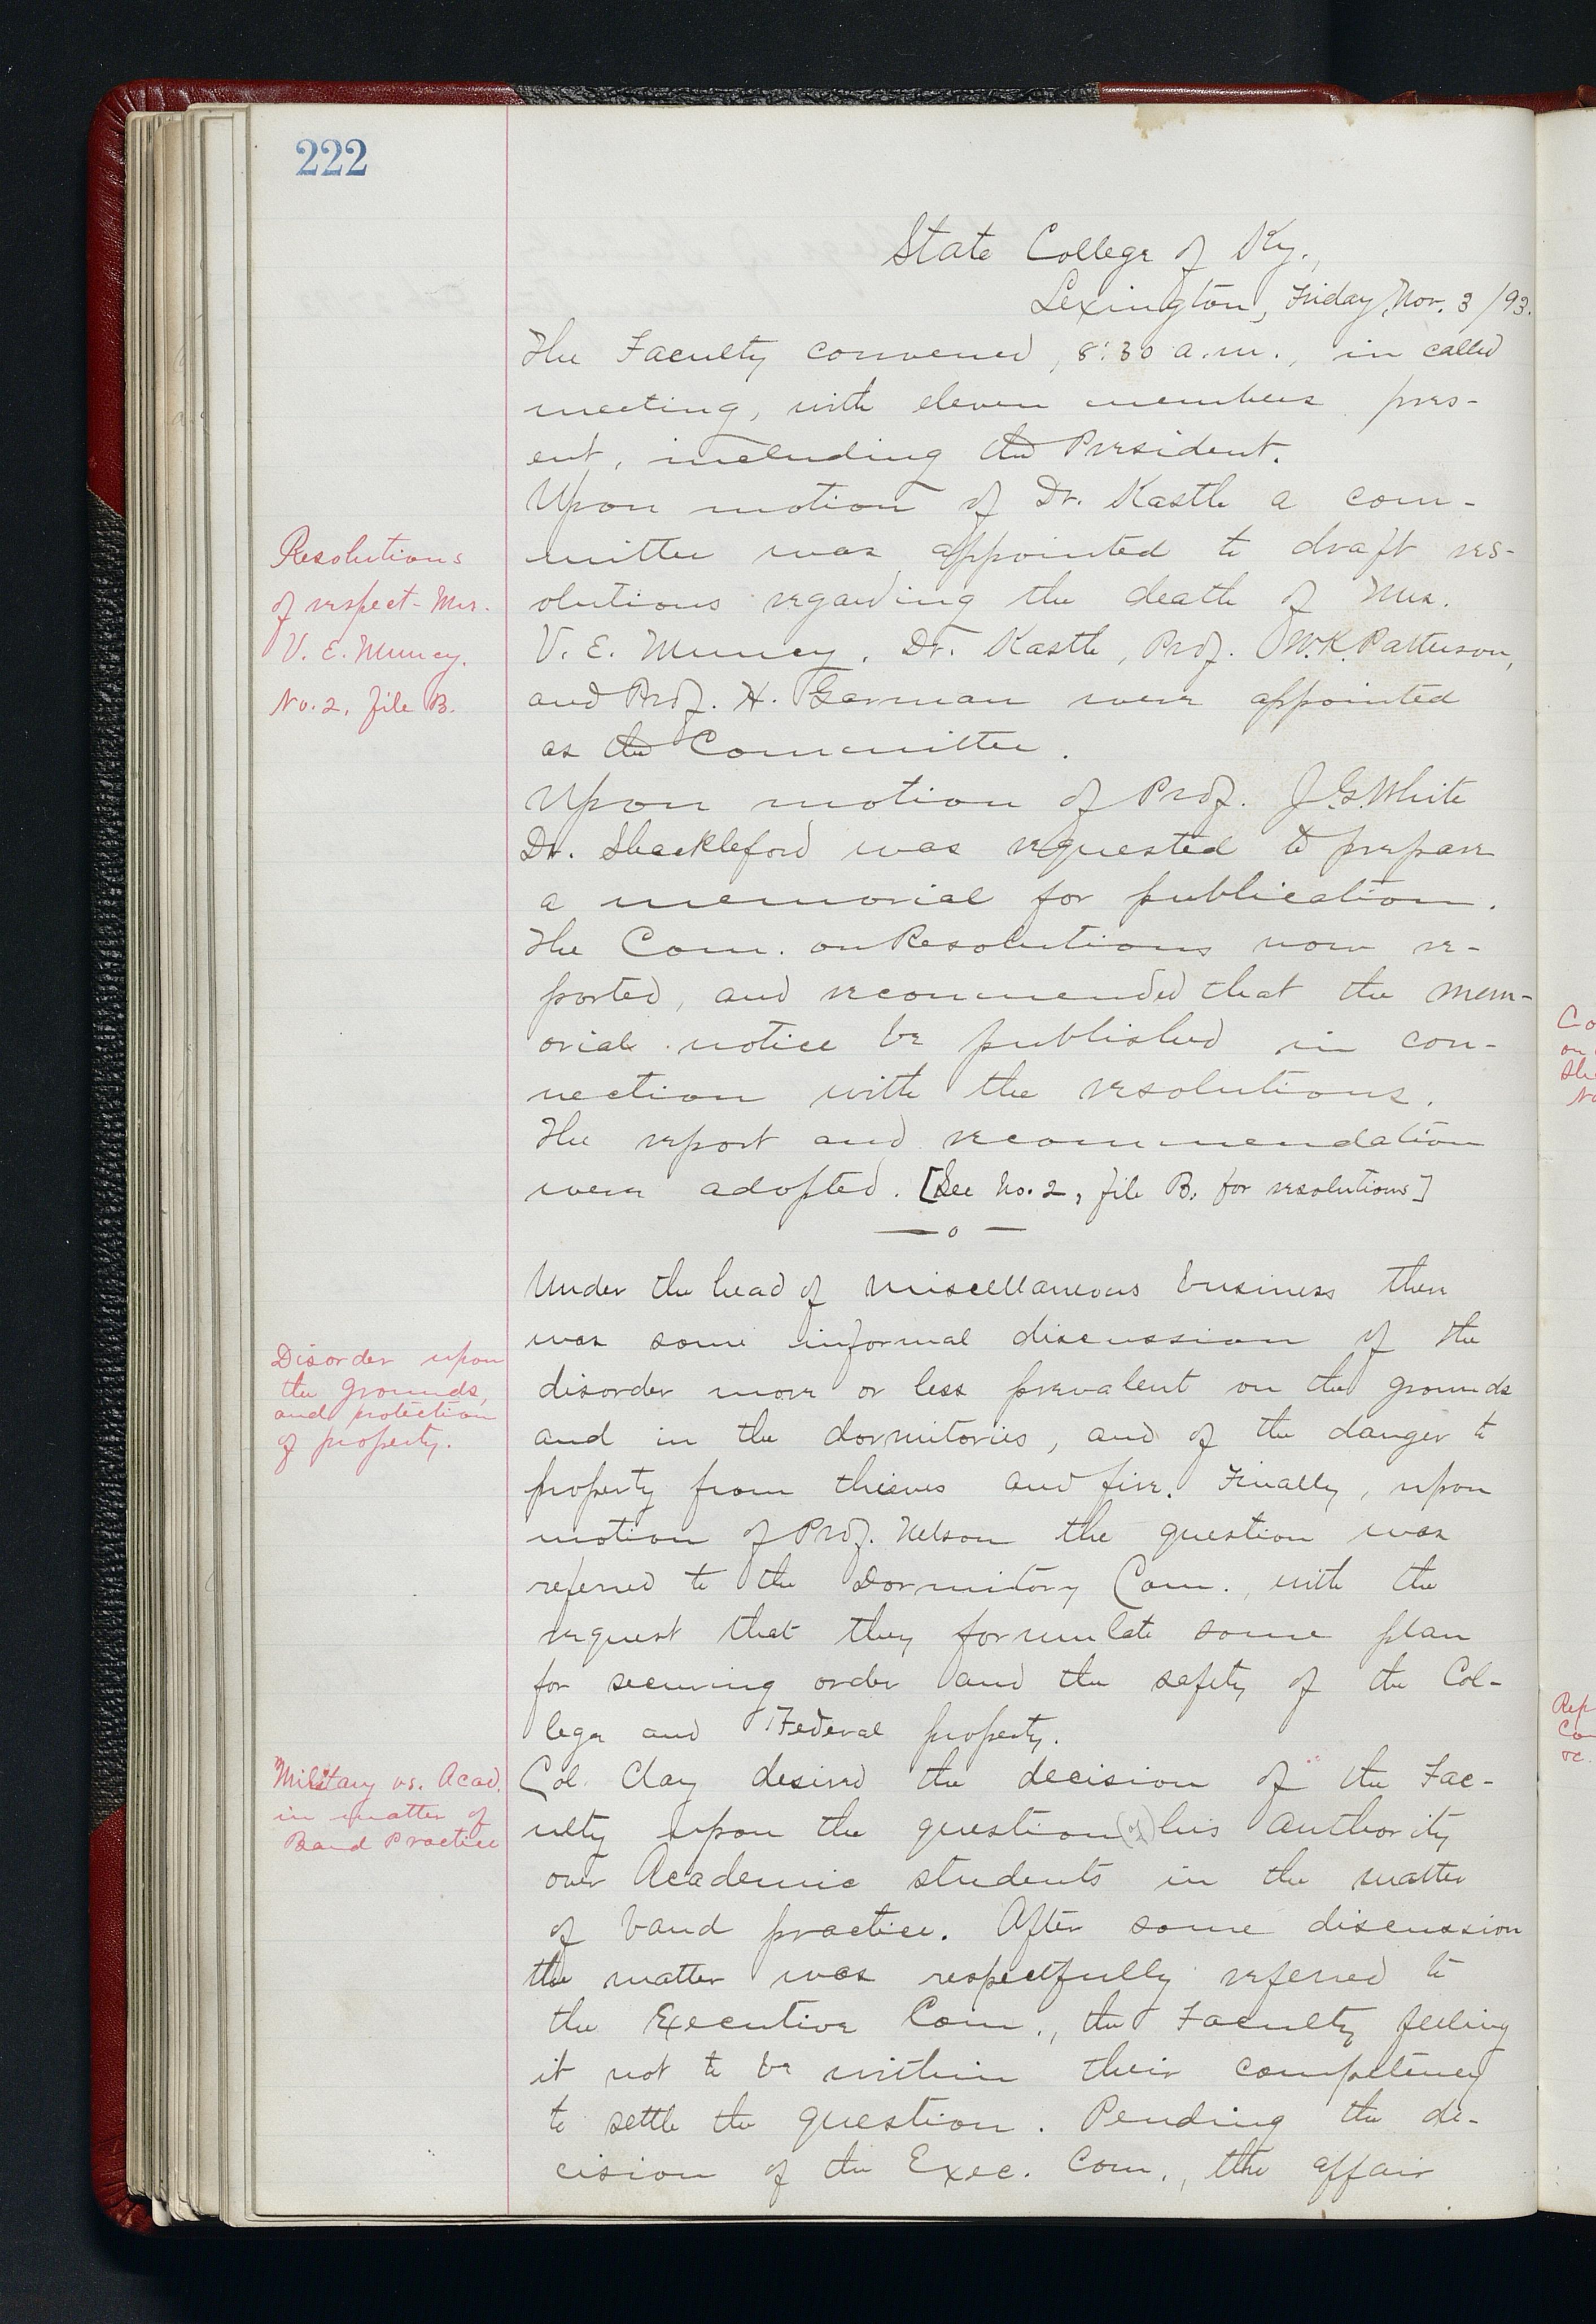 222
State College of Ky.,
Lexington, Friday, Nov. 3/93.
The Faculty convened, 8:30 a.m., in called
meeting, with eleven members pres-
ent, including the President.
Upon motion of Dr. Kastle a com-
mittee was appointed to draft res-
olutions regarding the death of Mrs.
V. E. Muncy. Dr. Kastle, Prof. W.K. Patterson,
and Prof. H. Garman were appointed
as the Committee.
Resolutions
of respect - Mrs.
V. E. Muncy.
No. 2, file B.
Upon motion of Prof. J.G. White
Dr. Shackleford was requested to prepare
a memorial for publication.
The Com. on Resolutions now re-
ported, and recommended that the mem-
orial notice be published in con-
nection with the resolutions.
The report and recommendation
were adopted. [See No. 2, file B. for resolutions]
— o —
Under the head of miscellaneous business there
was some informal discussion of the
disorder more or less prevalent on the grounds
and in the dormitories, and of the danger to
property from thieves and fire. Finally, upon
motion of Prof. Nelson the question was
referred to the Dormitory Com., with the
request that they formulate some plan
for securing order and the safety of the Col-
lege and Federal property.
Disorder upon
the grounds,
and protection
of property.
Col. Clay desired the decision of the Fac-
ulty upon the question (of) his authority
over Academic students in the matter
of band practice. After some discussion
the matter was respectfully referred to
the Executive Com., the Faculty feeling
it not to be within their competency
to settle the question. Pending the de-
cision of the Exec. Com., the affair
Military vs. Acad.
in matter of
Band Practice
Co
on
She
No
Rep
Co